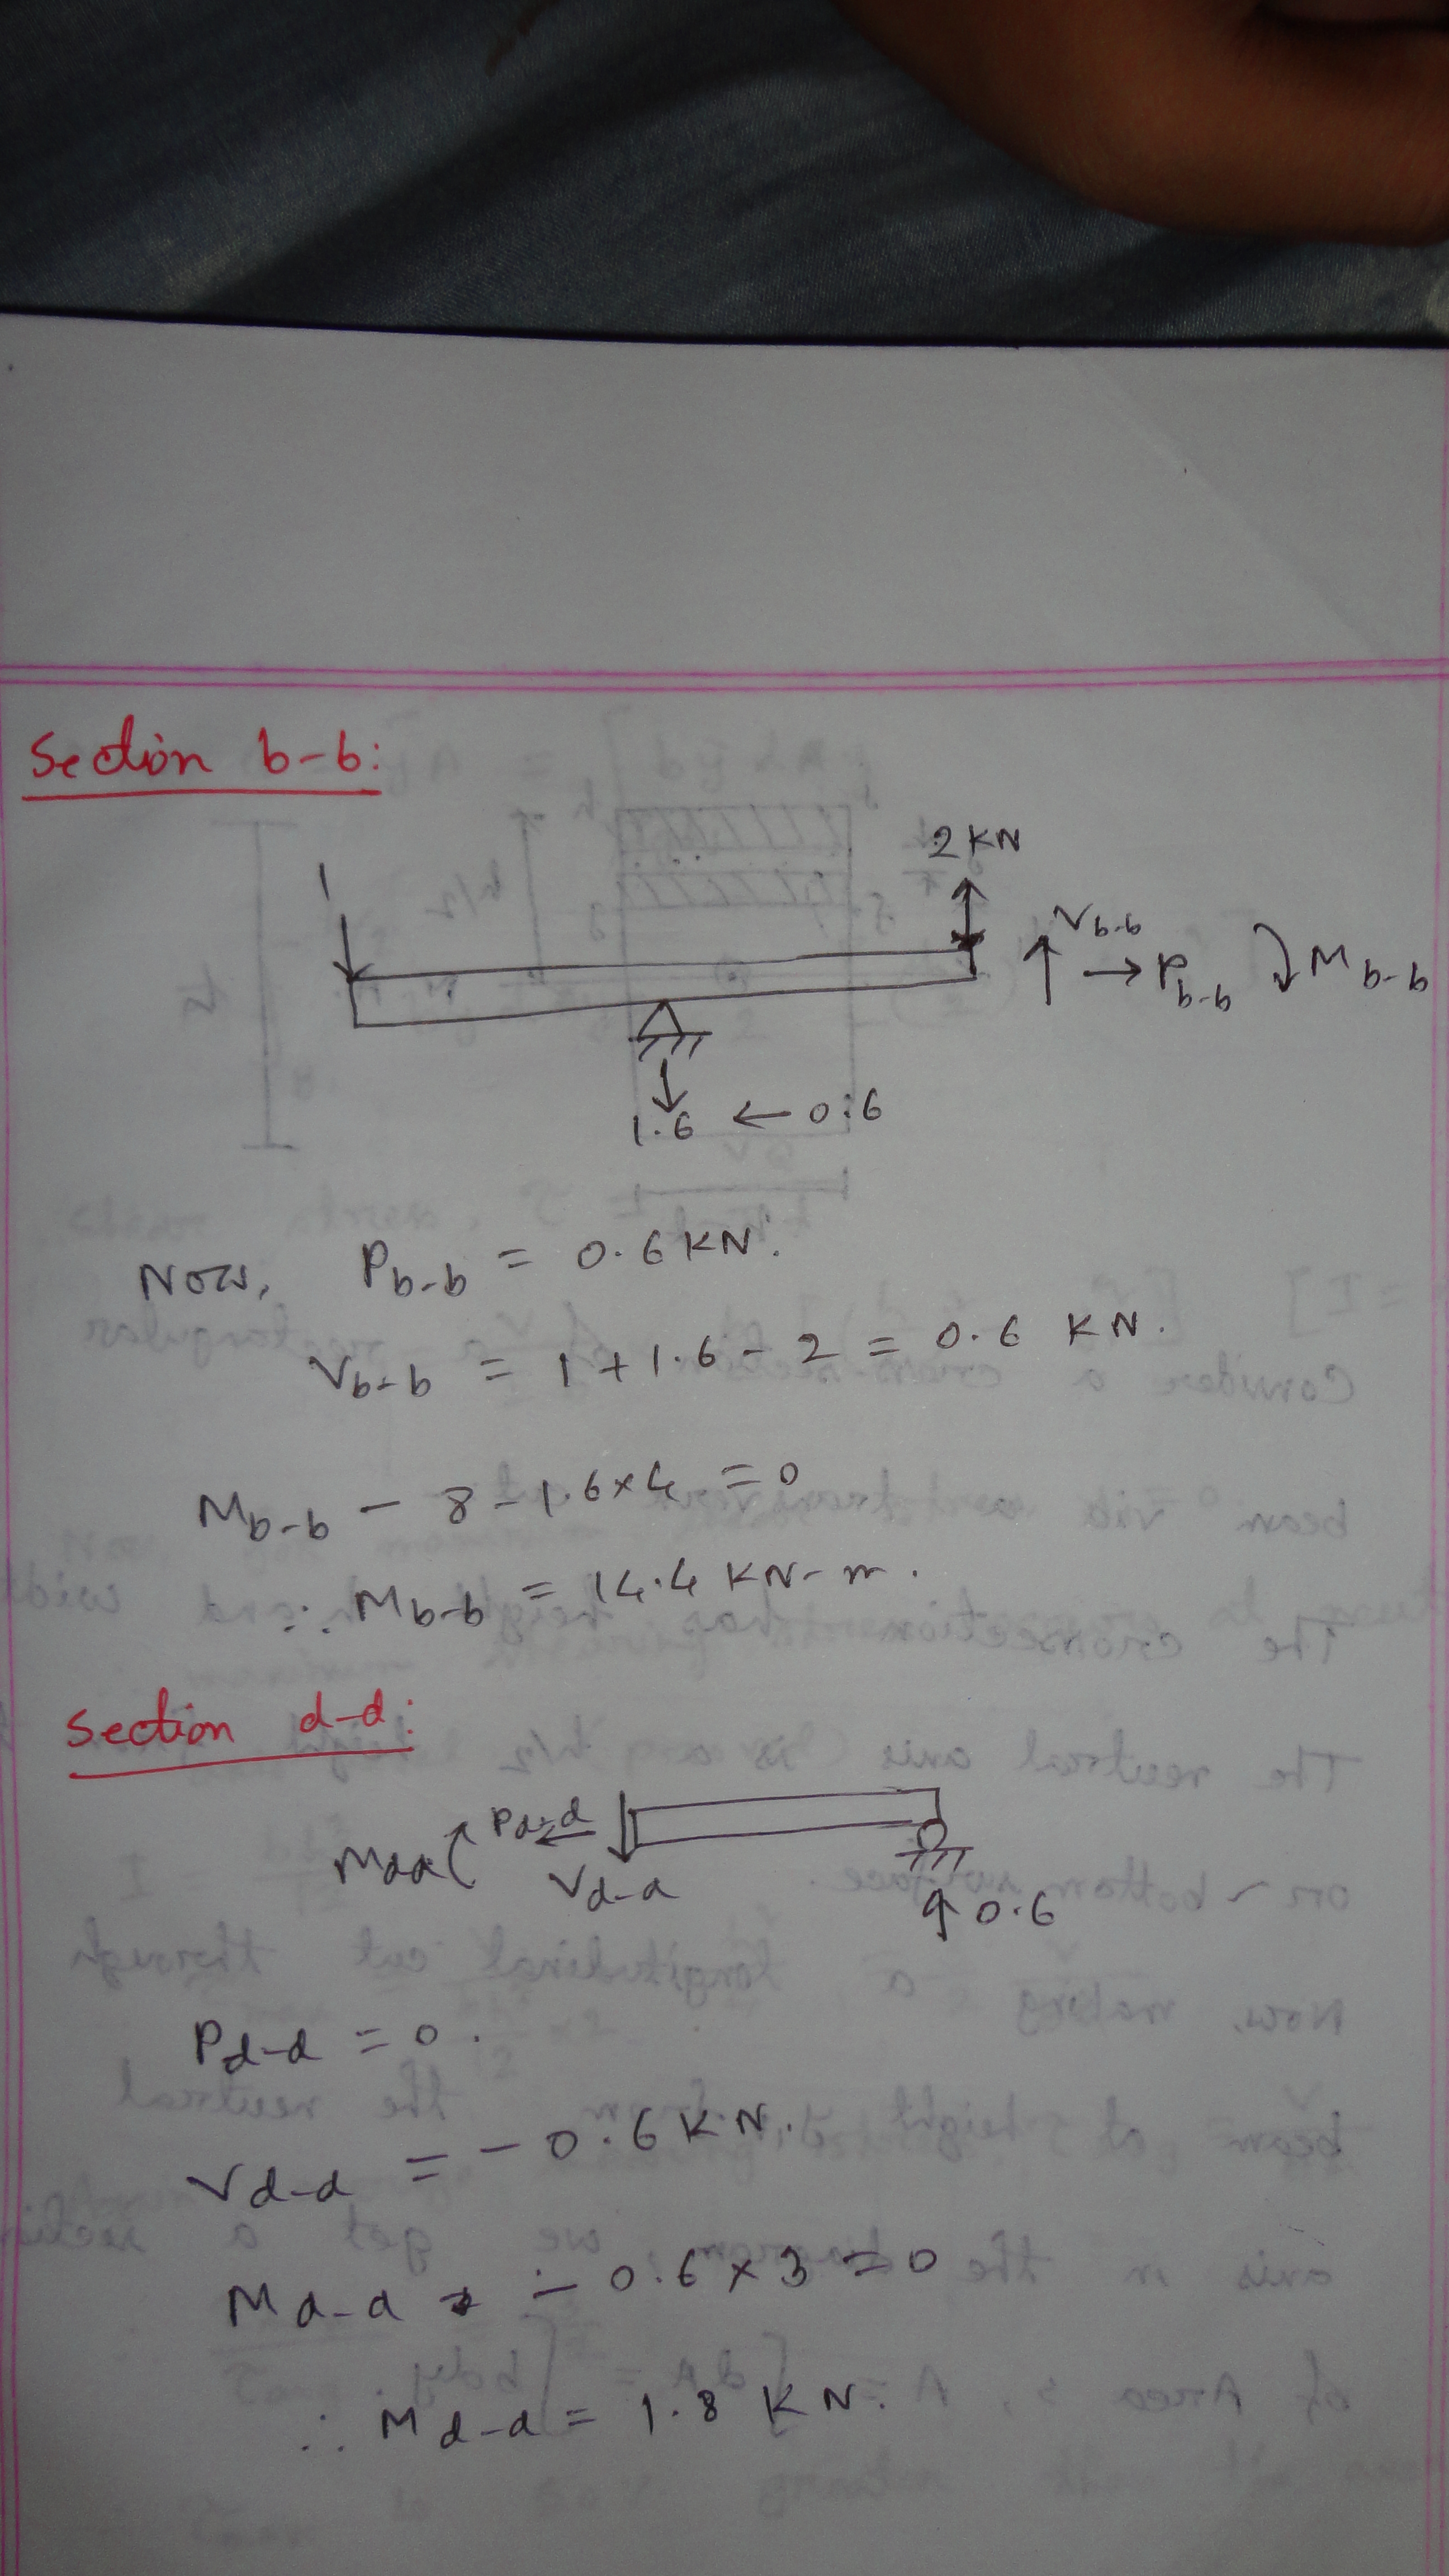 Section b-b:
2 KN
1
V b-b
P b-b
M b-b
1.6 ← 0.6
Now, P b-b = 0.6 KN.
V b-b = 1 + 1.6 - 2 = 0.6 KN.
M b-b - 8 - 1.6 × 4 = 0
∴ M b-b = 14.4 KN-m.
Section d-d:
P d-d
M d-d
V d-d
0.6
P d-d = 0.
V d-d = - 0.6 KN.
M d-d - 0.6 × 3 = 0
∴ M d-d = 1.8 KN.